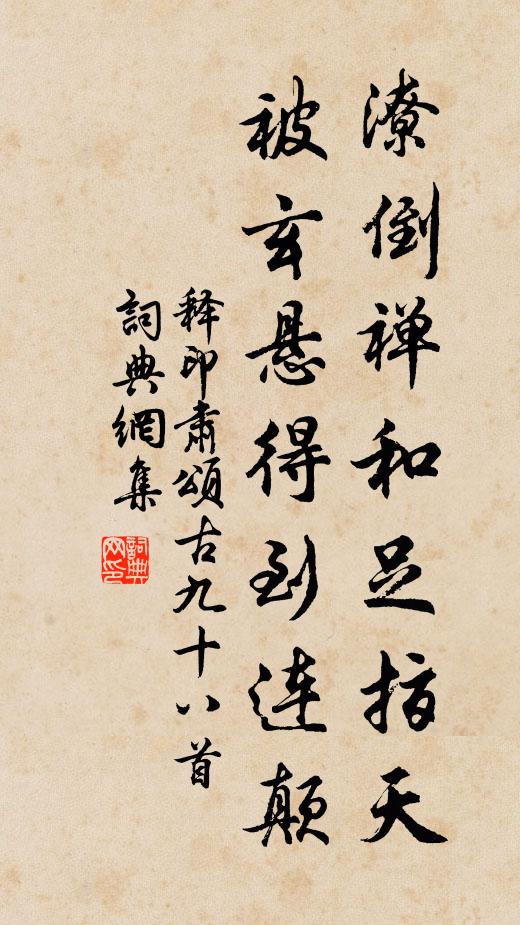 潦倒禅和足指天
被玄悬得到连颠
释印肃颂古九十八首
詞典網集
詞典
网印